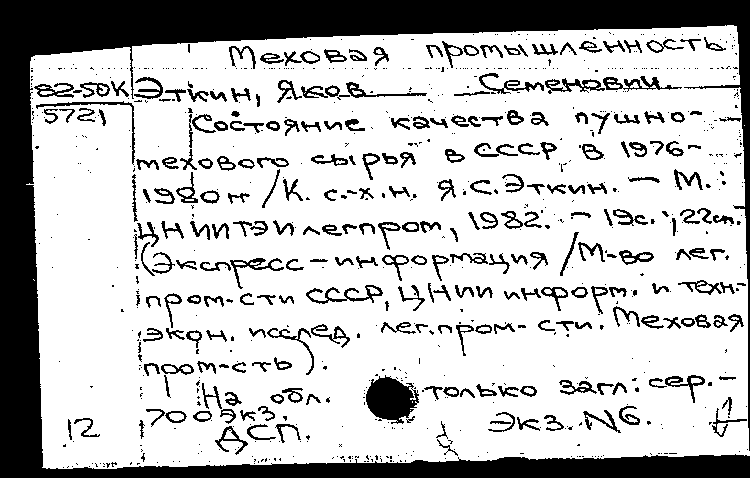 Меховая промышленность
82-50К Эткин, Яков Семенович.
5721 Состояние качества пушно-
мехового сырья в СССР в 1976-
1980 гг / К. с.-х.н. Я.С.Эткин. — М.:
ЦНИИТЭИлегпром, 1982. - 19с.; 22см.
(Экспресс-информация / М-во лег.
пром-сти СССР, ЦНИИ информ. и техн-
экон. исслед. лег.пром-сти. Меховая
пром-сть).
На обл. только загл: сер.-
12 700 экз. Экз. N6.
ДСП.